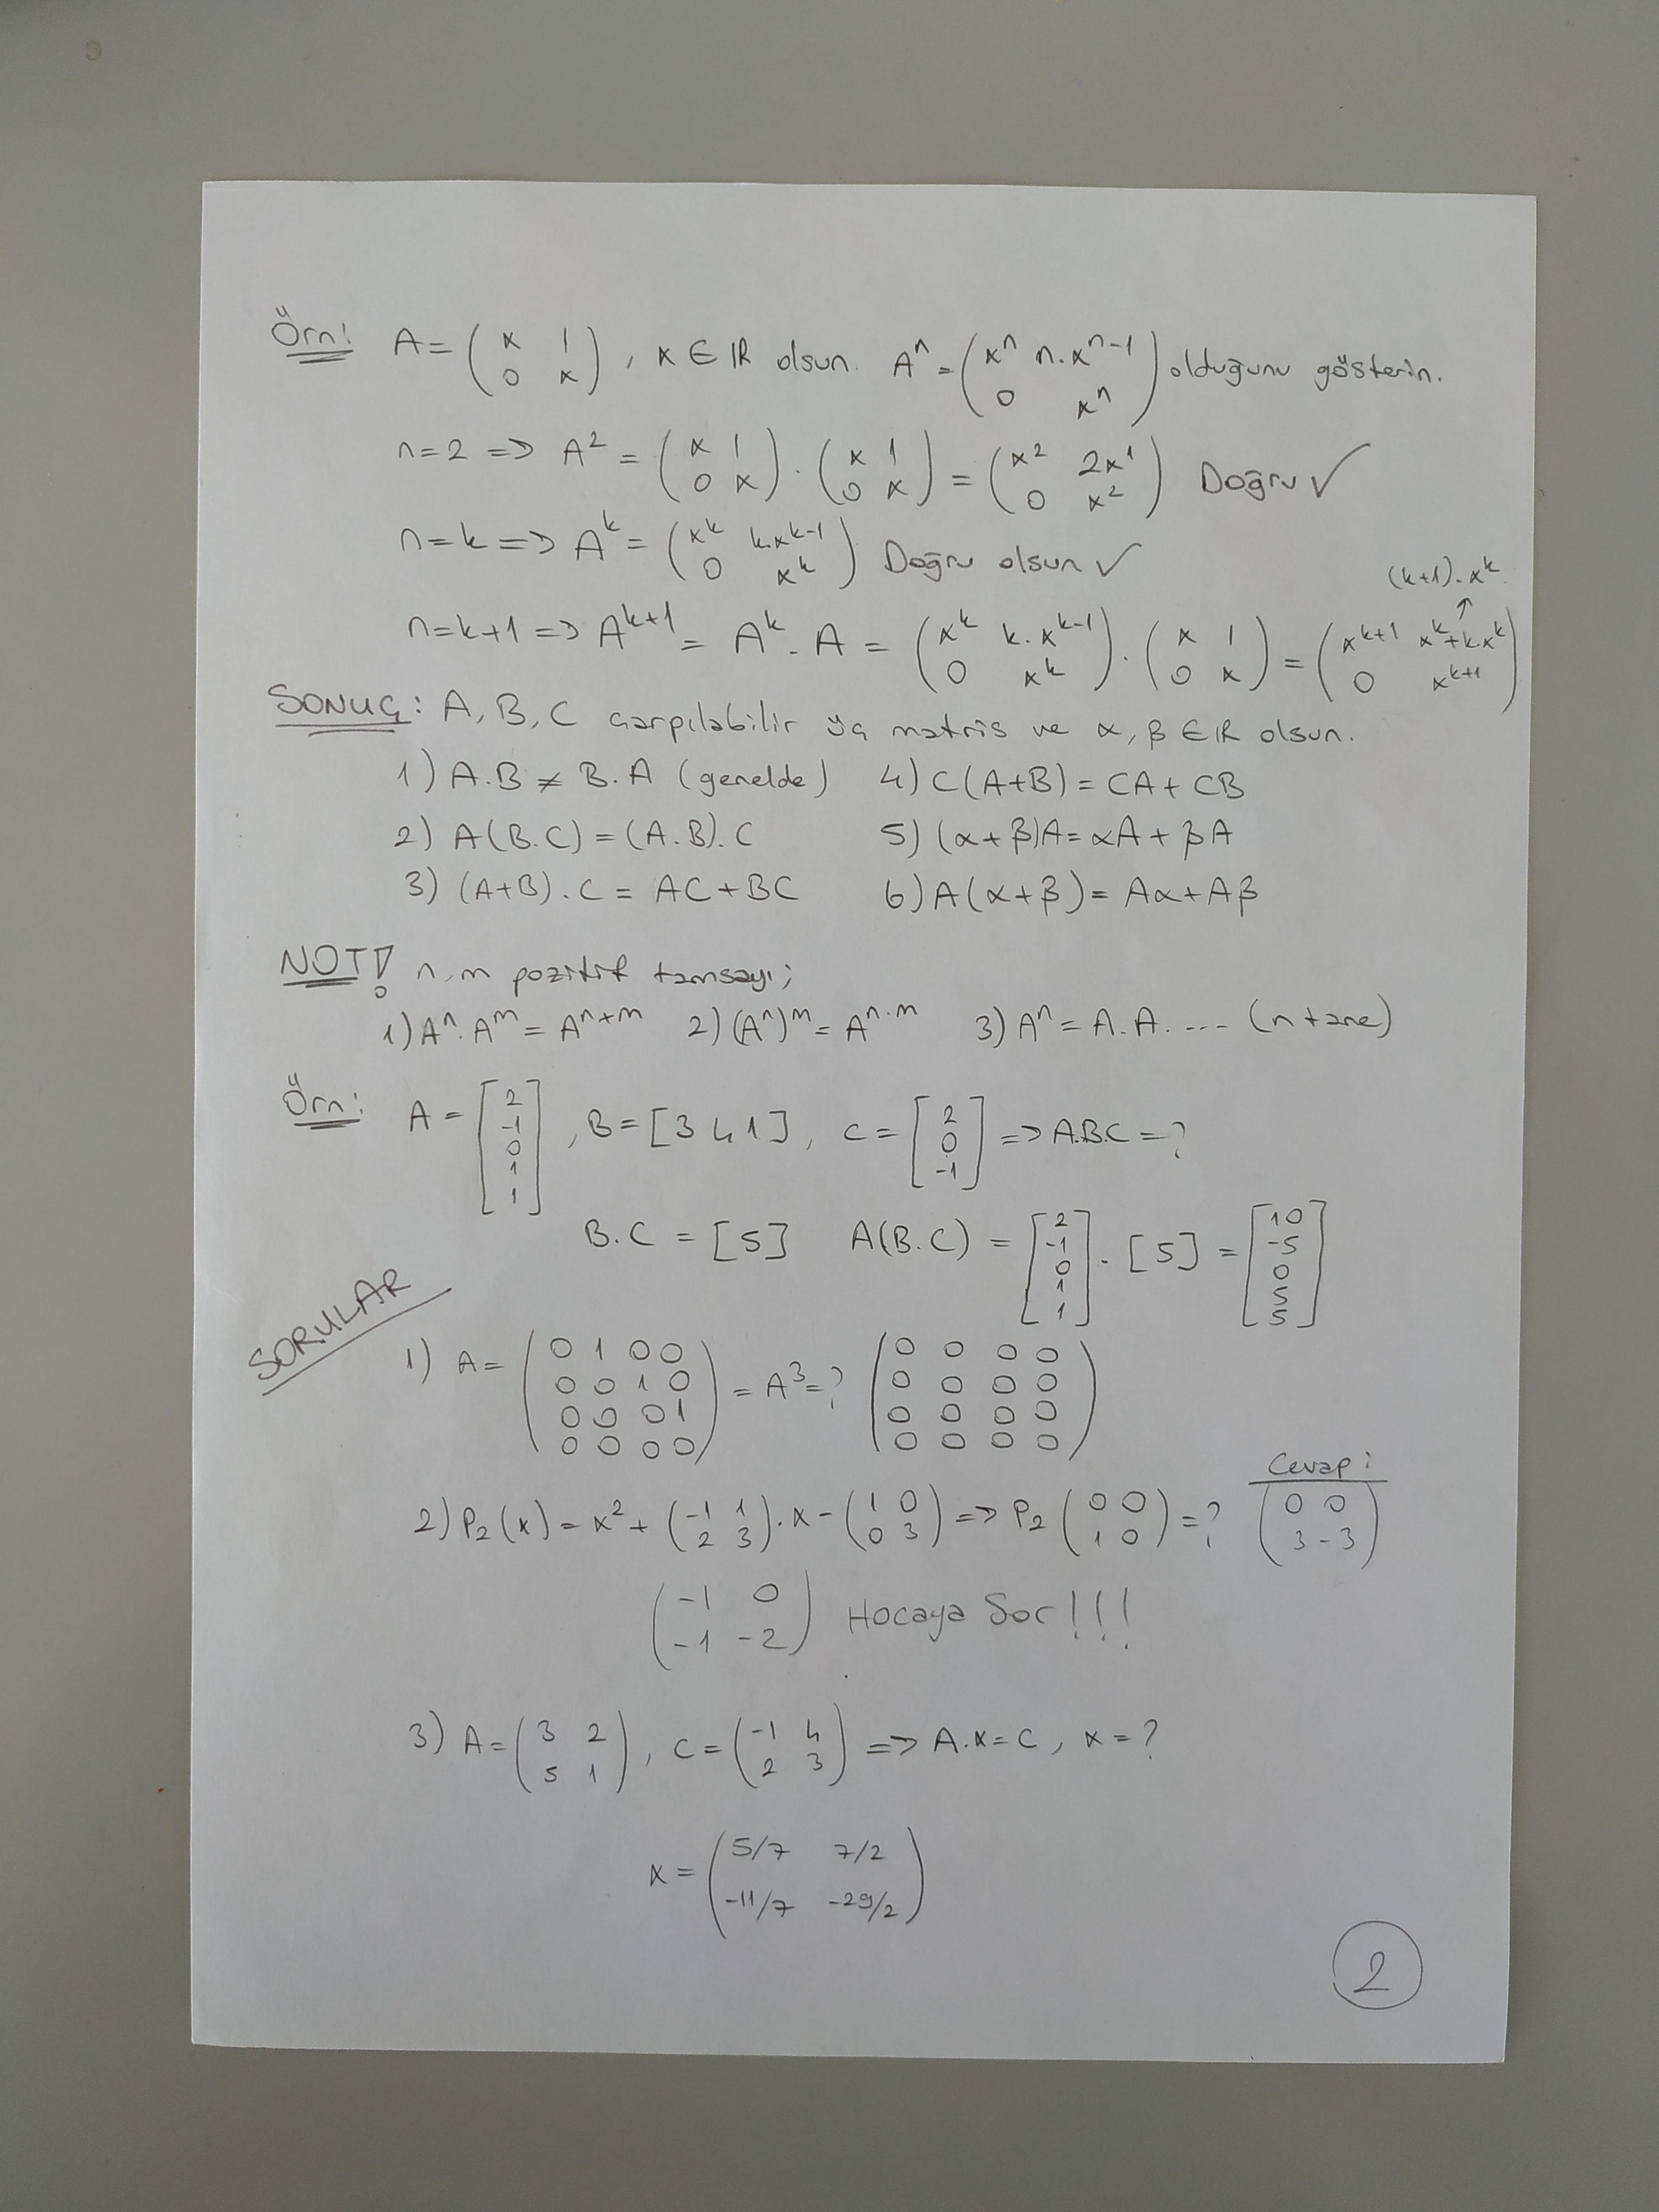 Örn: A = ( x 1 ; 0 x ), x ∈ ℝ olsun. Aⁿ = ( xⁿ n.xⁿ⁻¹ ; 0 xⁿ ) olduğunu gösterin.
n=2 => A² = ( x 1 ; 0 x ) . ( x 1 ; 0 x ) = ( x² 2x¹ ; 0 x² ) Doğru ✓
n=k => Aᵏ = ( xᵏ k.xᵏ⁻¹ ; 0 xᵏ ) Doğru olsun ✓
(k+1).xᵏ
n=k+1 => Aᵏ⁺¹ = Aᵏ . A = ( xᵏ k.xᵏ⁻¹ ; 0 xᵏ ) . ( x 1 ; 0 x ) = ( xᵏ⁺¹ xᵏ+k.xᵏ ; 0 xᵏ⁺¹ )
SONUÇ: A, B, C çarpılabilir üç matris ve α, β ∈ ℝ olsun.
1) A.B ≠ B.A (genelde) 4) C(A+B) = CA + CB
2) A(B.C) = (A.B).C 5) (α+β)A = αA + βA
3) (A+B).C = AC + BC 6) A(α+β) = Aα + Aβ
NOT! n, m pozitif tamsayı;
1) Aⁿ.Aᵐ = Aⁿ⁺ᵐ 2) (Aⁿ)ᵐ = Aⁿ·ᵐ 3) Aⁿ = A.A. ... (n tane)
Örn: A = [ 2 ; -1 ; 0 ; 1 ; 1 ], B = [3 4 1], C = [ 2 ; 0 ; -1 ] => A.B.C = ?
B.C = [5] A(B.C) = [ 2 ; -1 ; 0 ; 1 ; 1 ] . [5] = [ 10 ; -5 ; 0 ; 5 ; 5 ]
SORULAR
1) A = ( 0 1 0 0 ; 0 0 1 0 ; 0 0 0 1 ; 0 0 0 0 ) = A³ = ? ( 0 0 0 0 ; 0 0 0 0 ; 0 0 0 0 ; 0 0 0 0 )
Cevap:
2) P₂(x) = x² + ( -1 1 ; 2 3 ) . x - ( 1 0 ; 0 3 ) => P₂ ( 0 0 ; 1 0 ) = ? ( 0 0 ; 3 -3 )
( -1 0 ; -1 -2 ) Hocaya Sor!!!
3) A = ( 3 2 ; 5 1 ), C = ( -1 4 ; 2 3 ) => A.x = C, x = ?
x = ( 5/7 7/2 ; -11/7 -29/2 )
2